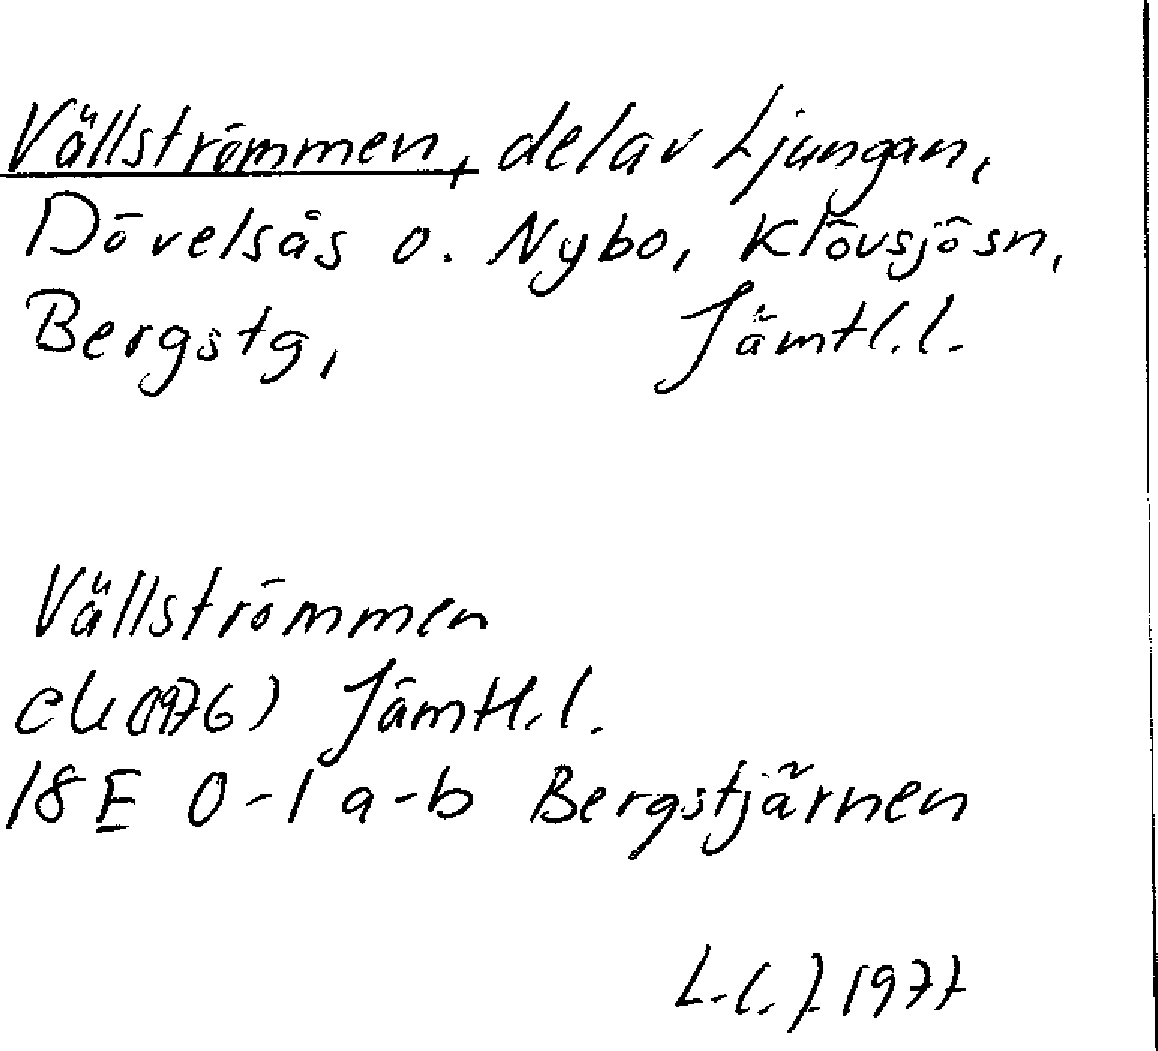 Vällströmmen, del av Ljungan,
Dövelsås o. Nybo, Klövsjösn,
Bergstg, Jämtl.l.
Vällströmmen
ek (1976) Jämtl.l.
18E 0-1 a-b Bergstjärnen
1977